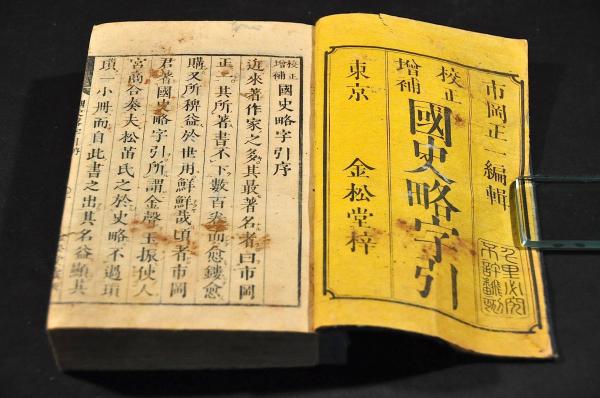 市岡正一編輯
校正
增補
國史略字引
東京 金松堂梓
千里必究
不許翻刻
校正
增補
國史略字引序
近來著作家之多其最著名者曰市岡
正一其所著書不下數百卷而愈鏤愈
購又所稗益於世用鮮鮮哉頃者市岡
君著國史略字引所謂金聲玉振人
宮商合奏夫松苗氏之於史略不過瑣
瑣一小冊而自此書之出其名益顯其